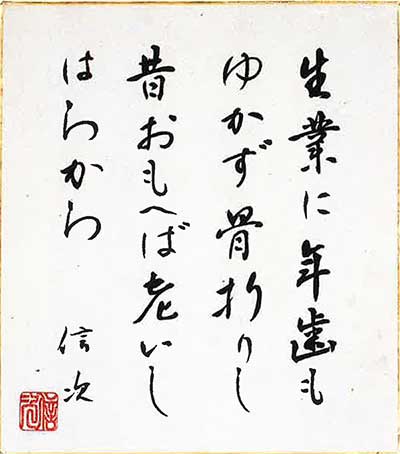 生業に年歯も
ゆかず骨折りし
昔おもへば老いし
はらから
信次